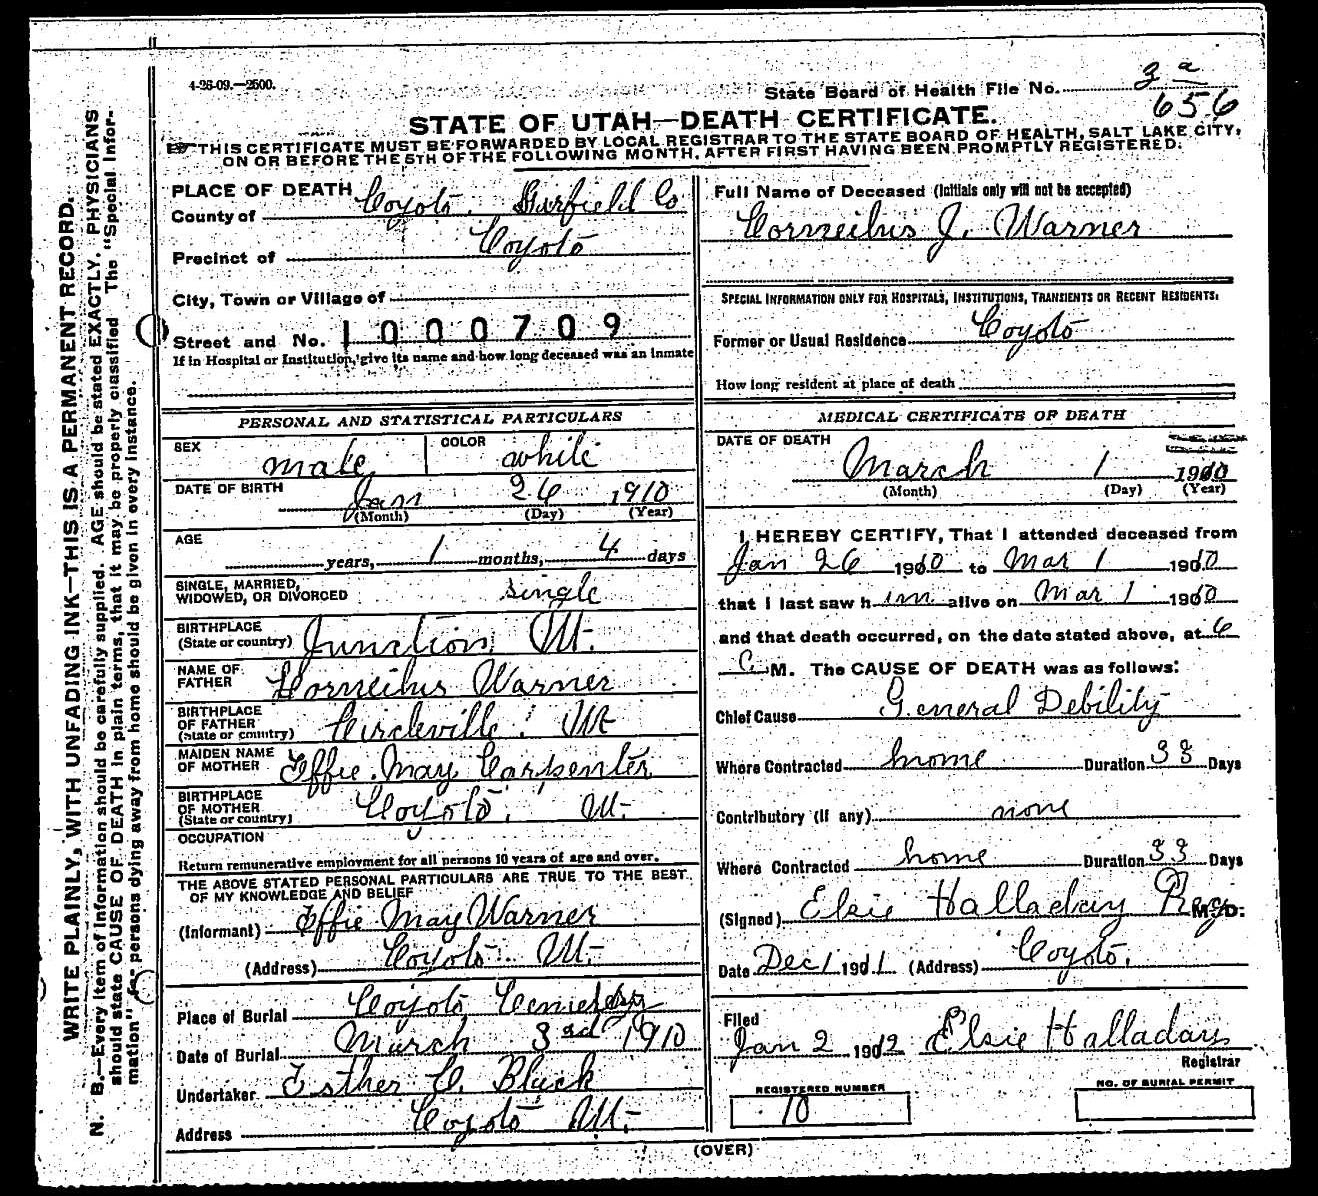 4-26-09.—2500.
State Board of Health File No. 3 a
656
STATE OF UTAH—DEATH CERTIFICATE.
THIS CERTIFICATE MUST BE FORWARDED BY LOCAL REGISTRAR TO THE STATE BOARD OF HEALTH, SALT LAKE CITY,
ON OR BEFORE THE 5TH OF THE FOLLOWING MONTH, AFTER FIRST HAVING BEEN PROMPTLY REGISTERED.
WRITE PLAINLY, WITH UNFADING INK—THIS IS A PERMANENT RECORD.
N. B.—Every item of information should be carefully supplied. AGE should be stated EXACTLY. PHYSICIANS
should state CAUSE OF DEATH in plain terms, that it may be properly classified The "Special Infor-
mation" for persons dying away from home should be given in every instance.
PLACE OF DEATH
County of Coyoto. Garfield Co
Precinct of Coyoto
City, Town or Village of
Street and No. 1000709
If in Hospital or Institution, give its name and how long deceased was an inmate
PERSONAL AND STATISTICAL PARTICULARS
SEX male COLOR white
DATE OF BIRTH Jan 26 1910
(Month) (Day) (Year)
AGE
years, 1 months, 4 days
SINGLE, MARRIED,
WIDOWED, OR DIVORCED single
BIRTHPLACE
(State or country) Junction, Ut.
NAME OF
FATHER Corneilus Warner
BIRTHPLACE
OF FATHER
(State or country) Circleville. Ut
MAIDEN NAME
OF MOTHER Effie May Carpenter
BIRTHPLACE
OF MOTHER
(State or country) Coyoto. Ut.
OCCUPATION
Return remunerative employment for all persons 10 years of age and over.
THE ABOVE STATED PERSONAL PARTICULARS ARE TRUE TO THE BEST
OF MY KNOWLEDGE AND BELIEF
(Informant) Effie May Warner
(Address) Coyoto Ut.
Place of Burial Coyoto Cemetery
Date of Burial March 3rd 1910
Undertaker Esther C. Black
Address Coyoto Ut.
Full Name of Deceased (Initials only will not be accepted)
Corneilus J. Warner
SPECIAL INFORMATION ONLY FOR HOSPITALS, INSTITUTIONS, TRANSIENTS OR RECENT RESIDENTS:
Former or Usual Residence Coyoto
How long resident at place of death
MEDICAL CERTIFICATE OF DEATH
DATE OF DEATH
March 1 1910
(Month) (Day) (Year)
I HEREBY CERTIFY, That I attended deceased from
Jan 26 1910 to Mar 1 1910
that I last saw h im alive on Mar 1 1910
and that death occurred, on the date stated above, at 6
M. The CAUSE OF DEATH was as follows:
Chief Cause General Debility
Where Contracted home Duration 33 Days
Contributory (if any) none
Where Contracted home Duration 33 Days
(Signed) Elsie Halladay Reg M. D.
Date Dec 1 1911 (Address) Coyoto.
Filed
Jan 2 1912 Elsie Halladay
Registrar
REGISTERED NUMBER
10
NO. OF BURIAL PERMIT
(OVER)